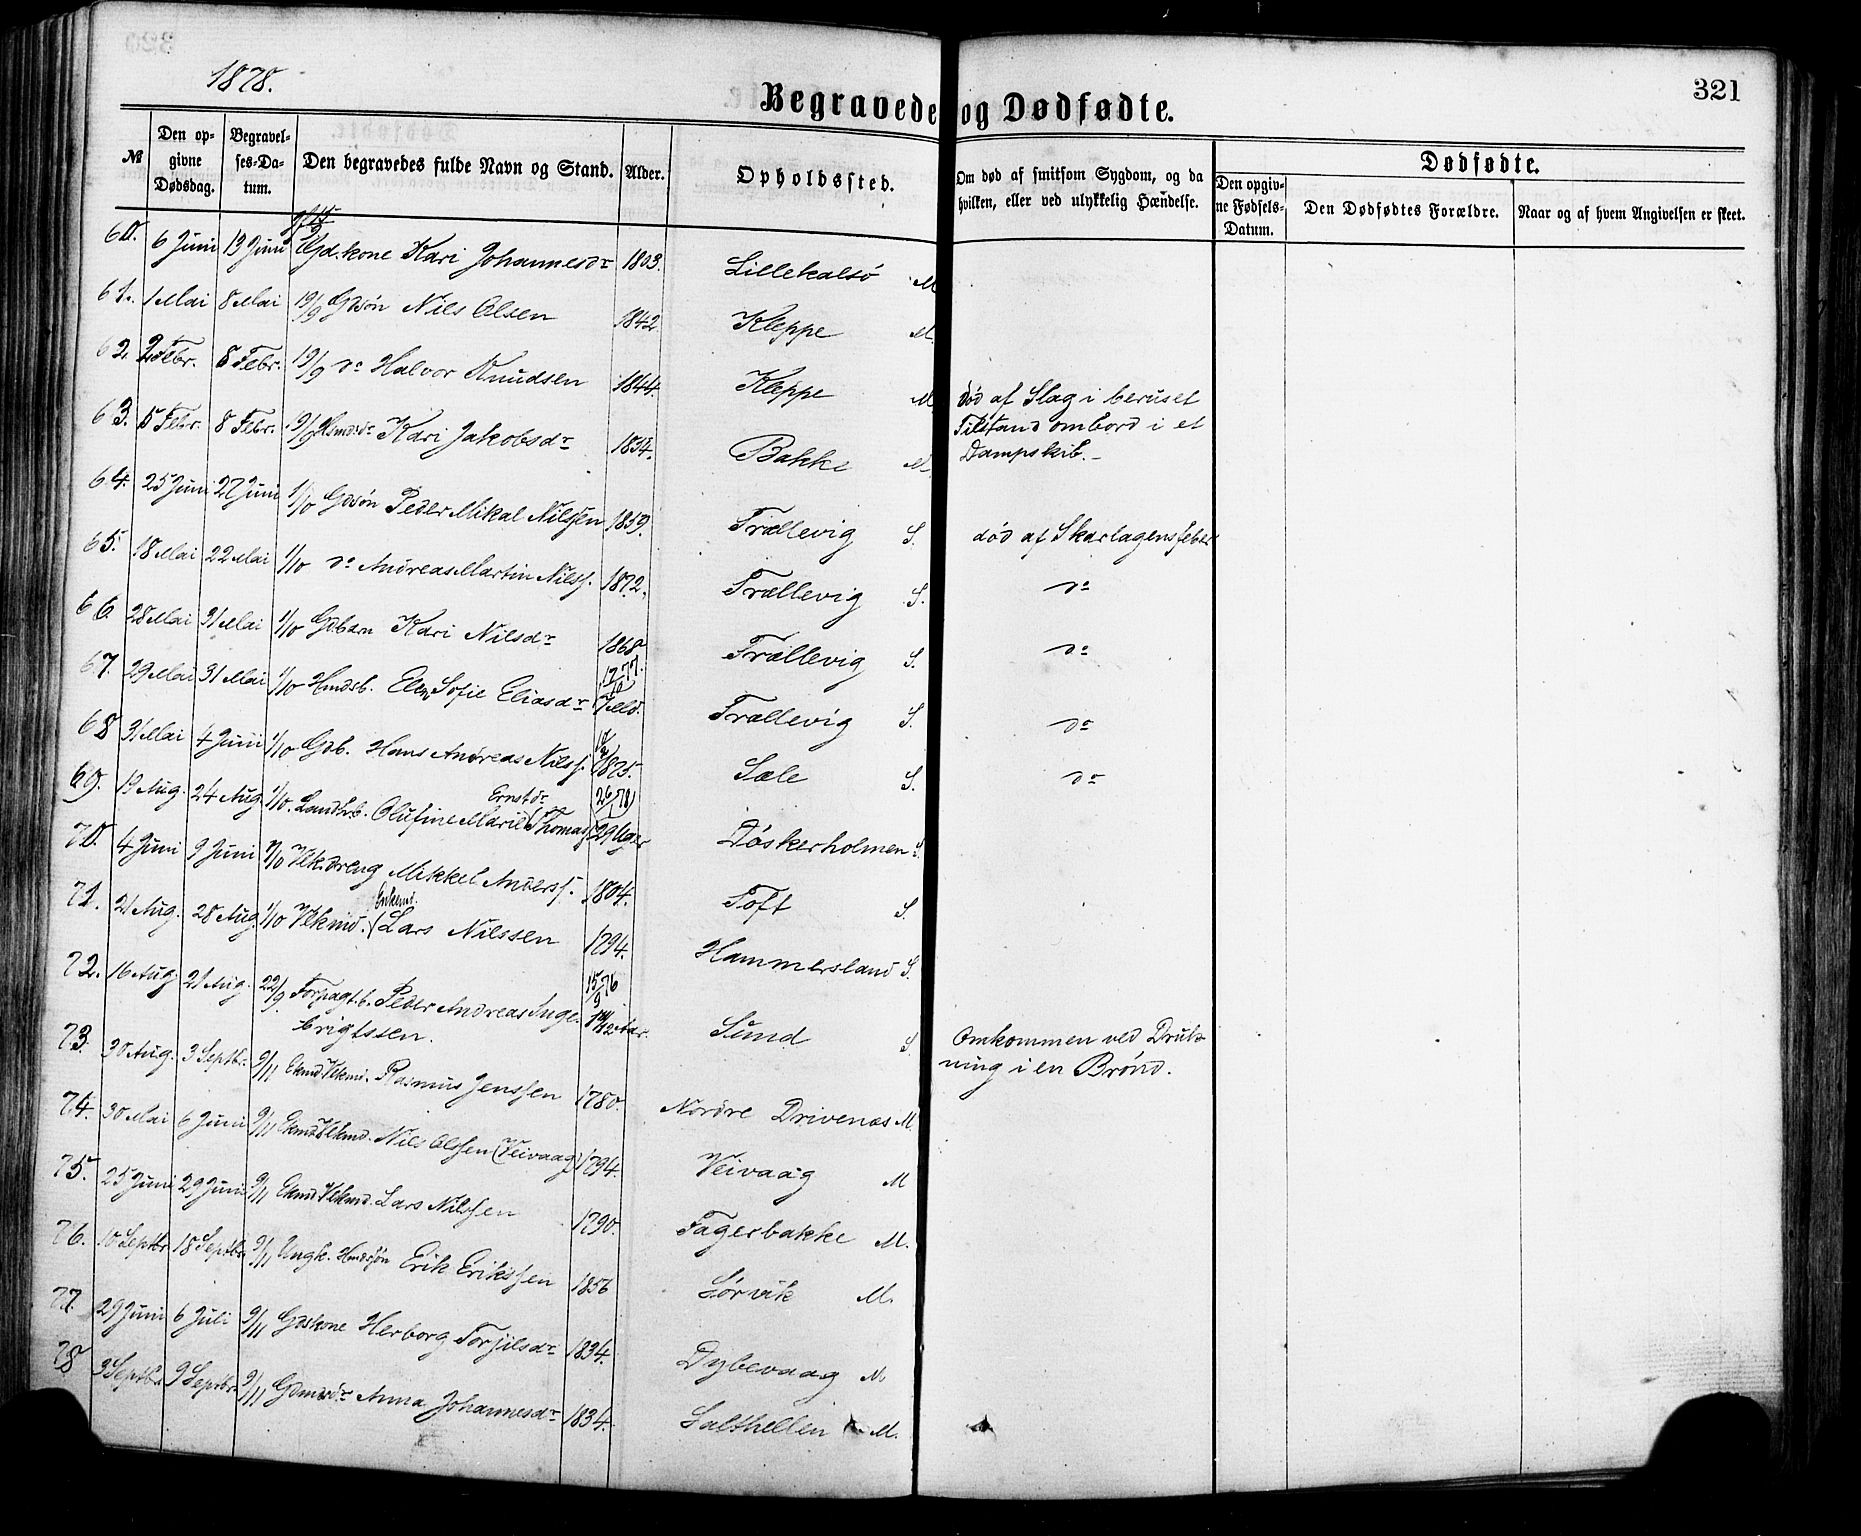 321
1878.
Begravede og Dødfødte.
№
Den opgivne Dødsdag.
Begravelses-Datum.
Den begravedes fulde Navn og Stand.
Alder.
Opholdssted.
Om død af smitsom Sygdom, og da hvilken, eller ved ulykkelig Hændelse.
Dødfødte.
Den opgivne Fødsels-Datum.
Den Dødfødtes Forældre.
Naar og af hvem Angivelsen er skeet.
60. 6 Juni 13 Juni Gjd.kone Kari Johannesdr 1803. Lillekalsö M
61. 1 Mai 8 Mai 19/9 Gdsøn Nils Olsen 1842 Kleppe M.
62. 2 Febr. 8 Febr. 19/9 do Halvor Knudsen 1844. Kleppe M død af Slag i beruset
Tilstand ombord i et
Dampskib.-
63. 5 Febr. 8 Febr. 19/9 Kari Jakobsdr 1834. Bakke M
64. 25 Juni 27 Juni 1/10 Gdsøn Peder Mikal Nilssen 1859. Trællevig S. død af Skarlagensfeber
65. 18 Mai 22 Mai 1/10 do Andreas Martin Nilss. 1872. Trællevig S. do
66. 28 Mai 31 Mai 1/10 Gdbarn Kari Nilsdr 1868 Trællevig S. do
67. 29 Mai 31 Mai 1/10 Hmdsb. Elen Sofie Eliasdr 12/10 77. 7 Md. Trællevig S. do
68 31 Mai 4 Juni 1/10 Gdb. Hans Andreas Nilss. 1875. Sæle S. do
69. 19 Aug. 24 Aug. 1/10. Olufine Marie Ernstdr (Thomas) 26/1 78) 29 Uger Döskerholmen S.
70. 4 Juni 9 Juni 1/10 Vlk.dreng Mikkel Anderss. 1804. Toft S.
71. 21 Aug. 28 Aug. 1/10 Vlkmd. (Enkemd. Lars Nilssen 1794. Hammersland S.
72. 16 Aug. 21 Aug. 22/9 Forpagt.b. Peder Andreas Inge-
brigtssen. 15/9 76 1 11/12 Aar. Sund S. Omkommen ved Drukning i en Brønd.
73. 30 Aug. 3 Septbr. 9/11 Ekmd Vlkmd. Rasmus Jenssen 1780. Nordre Drivenæs M.
74. 30 Mai 6 Juni 9/11 Ekmd Vlkmd. Nils Olssen (Veivaag) 1794. Veivaag M
75. 25 Juni 29 Juni 9/11 Ekmd Vlkmd. Lars Nilssen 1790. Fagerbakke M.
76. 10 Septbr 18 Septbr. 9/11 Ungk. Hmdssøn Erik Erikssen 1856 Sørvik M.
77. 29 Juni 6 Juli 9/11 Gdskone Herborg Torjilsdr 1834. Dybevaag M
78 3 Septbr. 9 Septbr. 9/11 Anna Johannesdr 1834. Salthellen M.